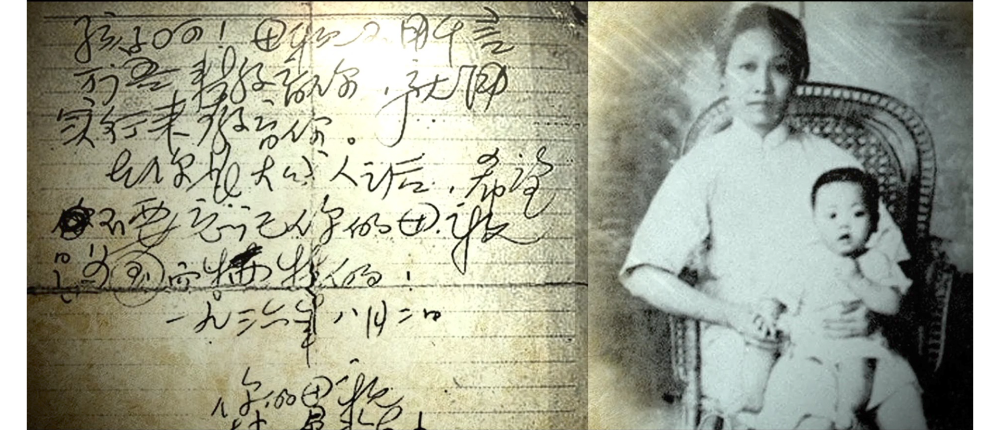 孩子啊！母亲不用千言
万语来教育你，就用
实行来教育你。
在你长大成人之后，希望
不要忘记你的母亲
是为国而牺牲的！
一九三六年八月二日
你的母亲